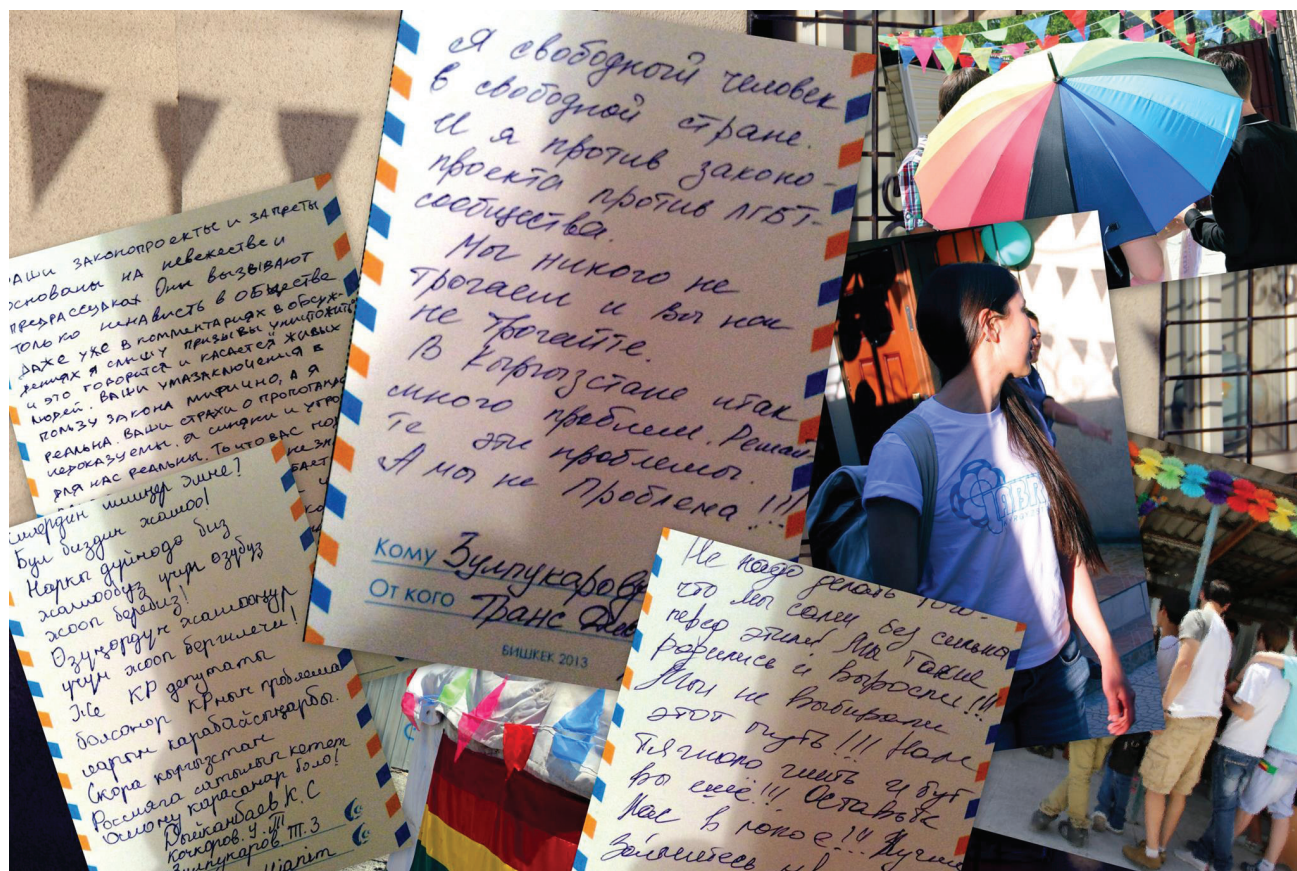 Я свободный человек
в свободной стране.
И я против законо-
проекта против ЛГБТ-
сообщества.
Мы никого не
трогаем и вы нас
не трогайте.
В Кыргызстане итак
много проблем. Решай-
те эти проблемы.
А мы не Проблема!!!
Кому Зулпукарову
От кого Транс
БИШКЕК 2013
ваши законопроекты и запреты
основаны на невежестве и
предрассудках. Они вызывают
только ненависть в обществе
даже уже в комментариях в обсуж-
дениях я слышу призывы уничтожить
и это говорится и касается живых
людей. Ваши умозаключения в
пользу закона мифично, а я
реальна. Ваши страхи о пропаганде
недоказуемы, а синяки и угро
для нас реальны. То что вас
эмне?
Бул биздин жашоо!
Наркы дүйнөдө биз
жашообуз үчүн өзүбүз
жооп беребиз!
Өзүңөрдүн жашооңор
үчүн жооп бергилечи!
Же КР депутаты
болсоңор КРнын проблема
ларын карабайсыңарбы.
Скоро кыргызстан
Россияга сатылып кетет
Ошону карасаңар боло!
Дыйканбаев К.С
Кочкоров У.Ш
Зулпукаров Т.З
Не надо делать того
что мы сами без сильны
перед этим! Мы такие
родились и выросли!!!
Мы не выбирали
этот путь!!! Нам
тяжело жить и тут
вы ещё!!! Оставьте
нас в покое!!! Лучше
Займитесь